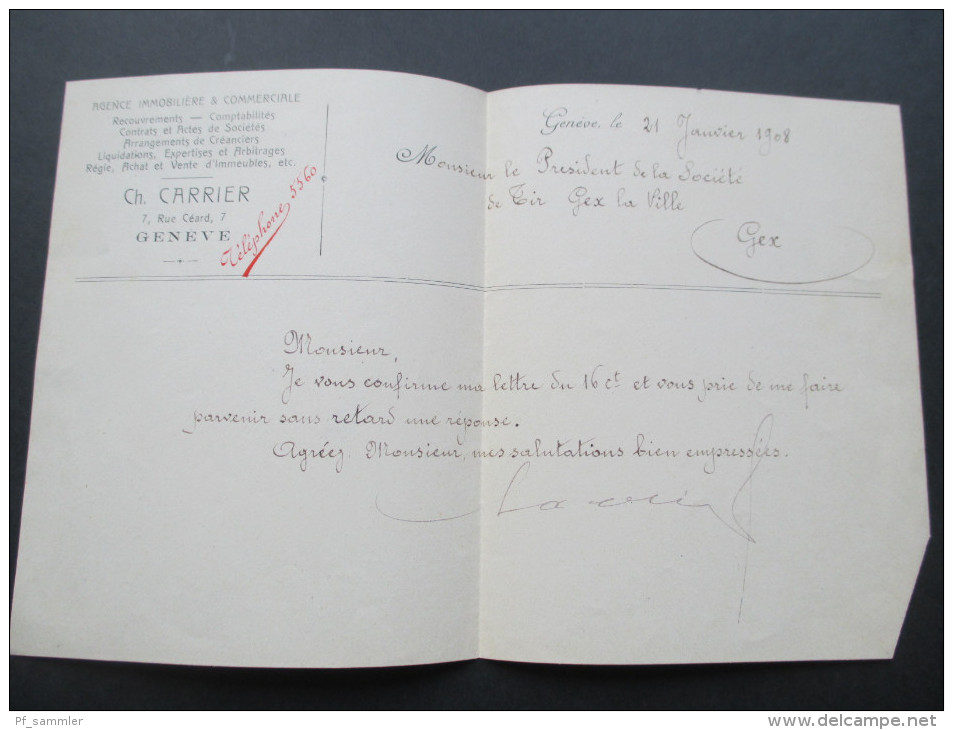 AGENCE IMMOBILIÈRE & COMMERCIALE
Recouvrements — Comptabilités
Contrats et Actes de Sociétés
Arrangements de Créanciers
Liquidations, Expertises et Arbitrages
Régie, Achat et Vente d'Immeubles, etc.
Ch. CARRIER
7, Rue Céard, 7
GENÈVE
Téléphone 5560
Genève, le 21 Janvier 1908
Monsieur le President de la Société
de Tir Gex la Ville
Gex
Monsieur,
Je vous confirme ma lettre du 16 ct et vous prie de me faire
parvenir sans retard une réponse.
Agréez Monsieur, mes salutations bien empressées.
Pf_sammler
www.delcampe.net